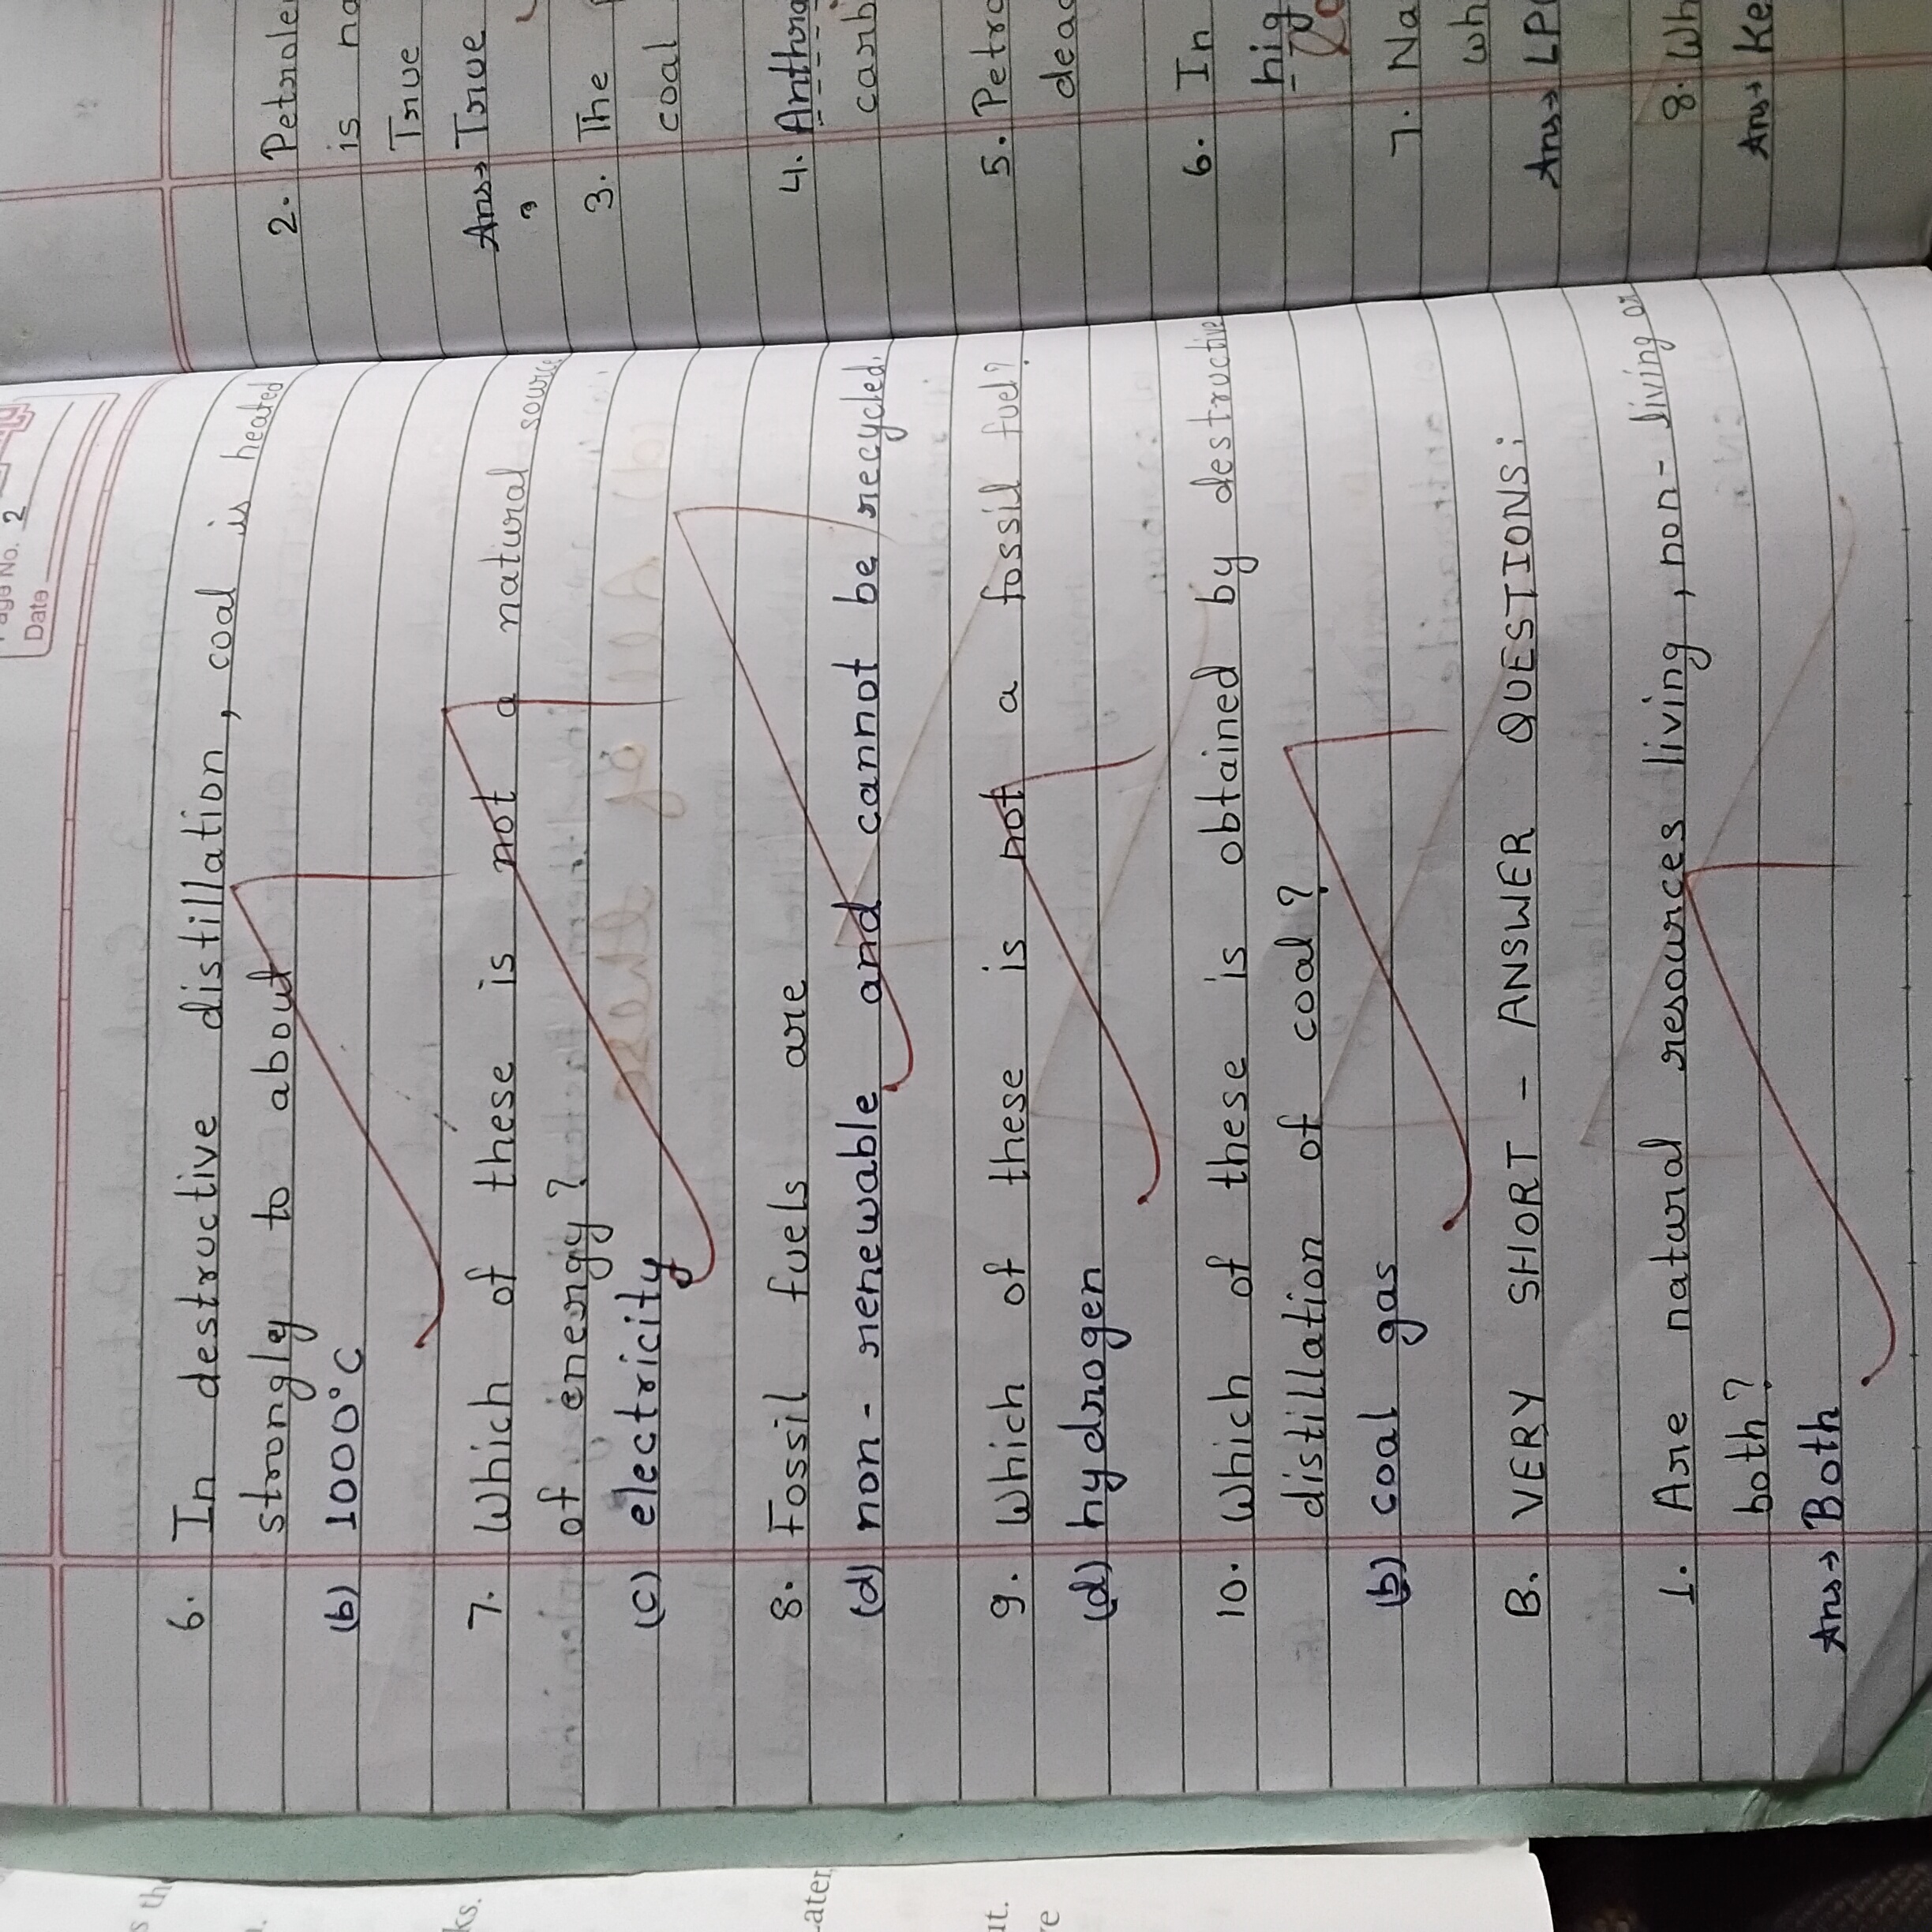 Page No. 2
Date
6. In destructive distillation, coal is heated
strongly to about
(b) 1000°C
7. Which of these is not a natural source
of energy?
(c) electricity
8. Fossil fuels are
(d) non-renewable and cannot be recycled.
9. Which of these is not a fossil fuel?
(d) hydrogen
10. Which of these is obtained by destructive
distillation of coal?
(b) coal gas
B. VERY SHORT - ANSWER QUESTIONS:
1. Are natural resources living, non-living or
both?
Ans→ Both
2.
is
True
Ans→ True
3. The
coal
4.
5.
6. In
7.
Ans→
8.
Ans→